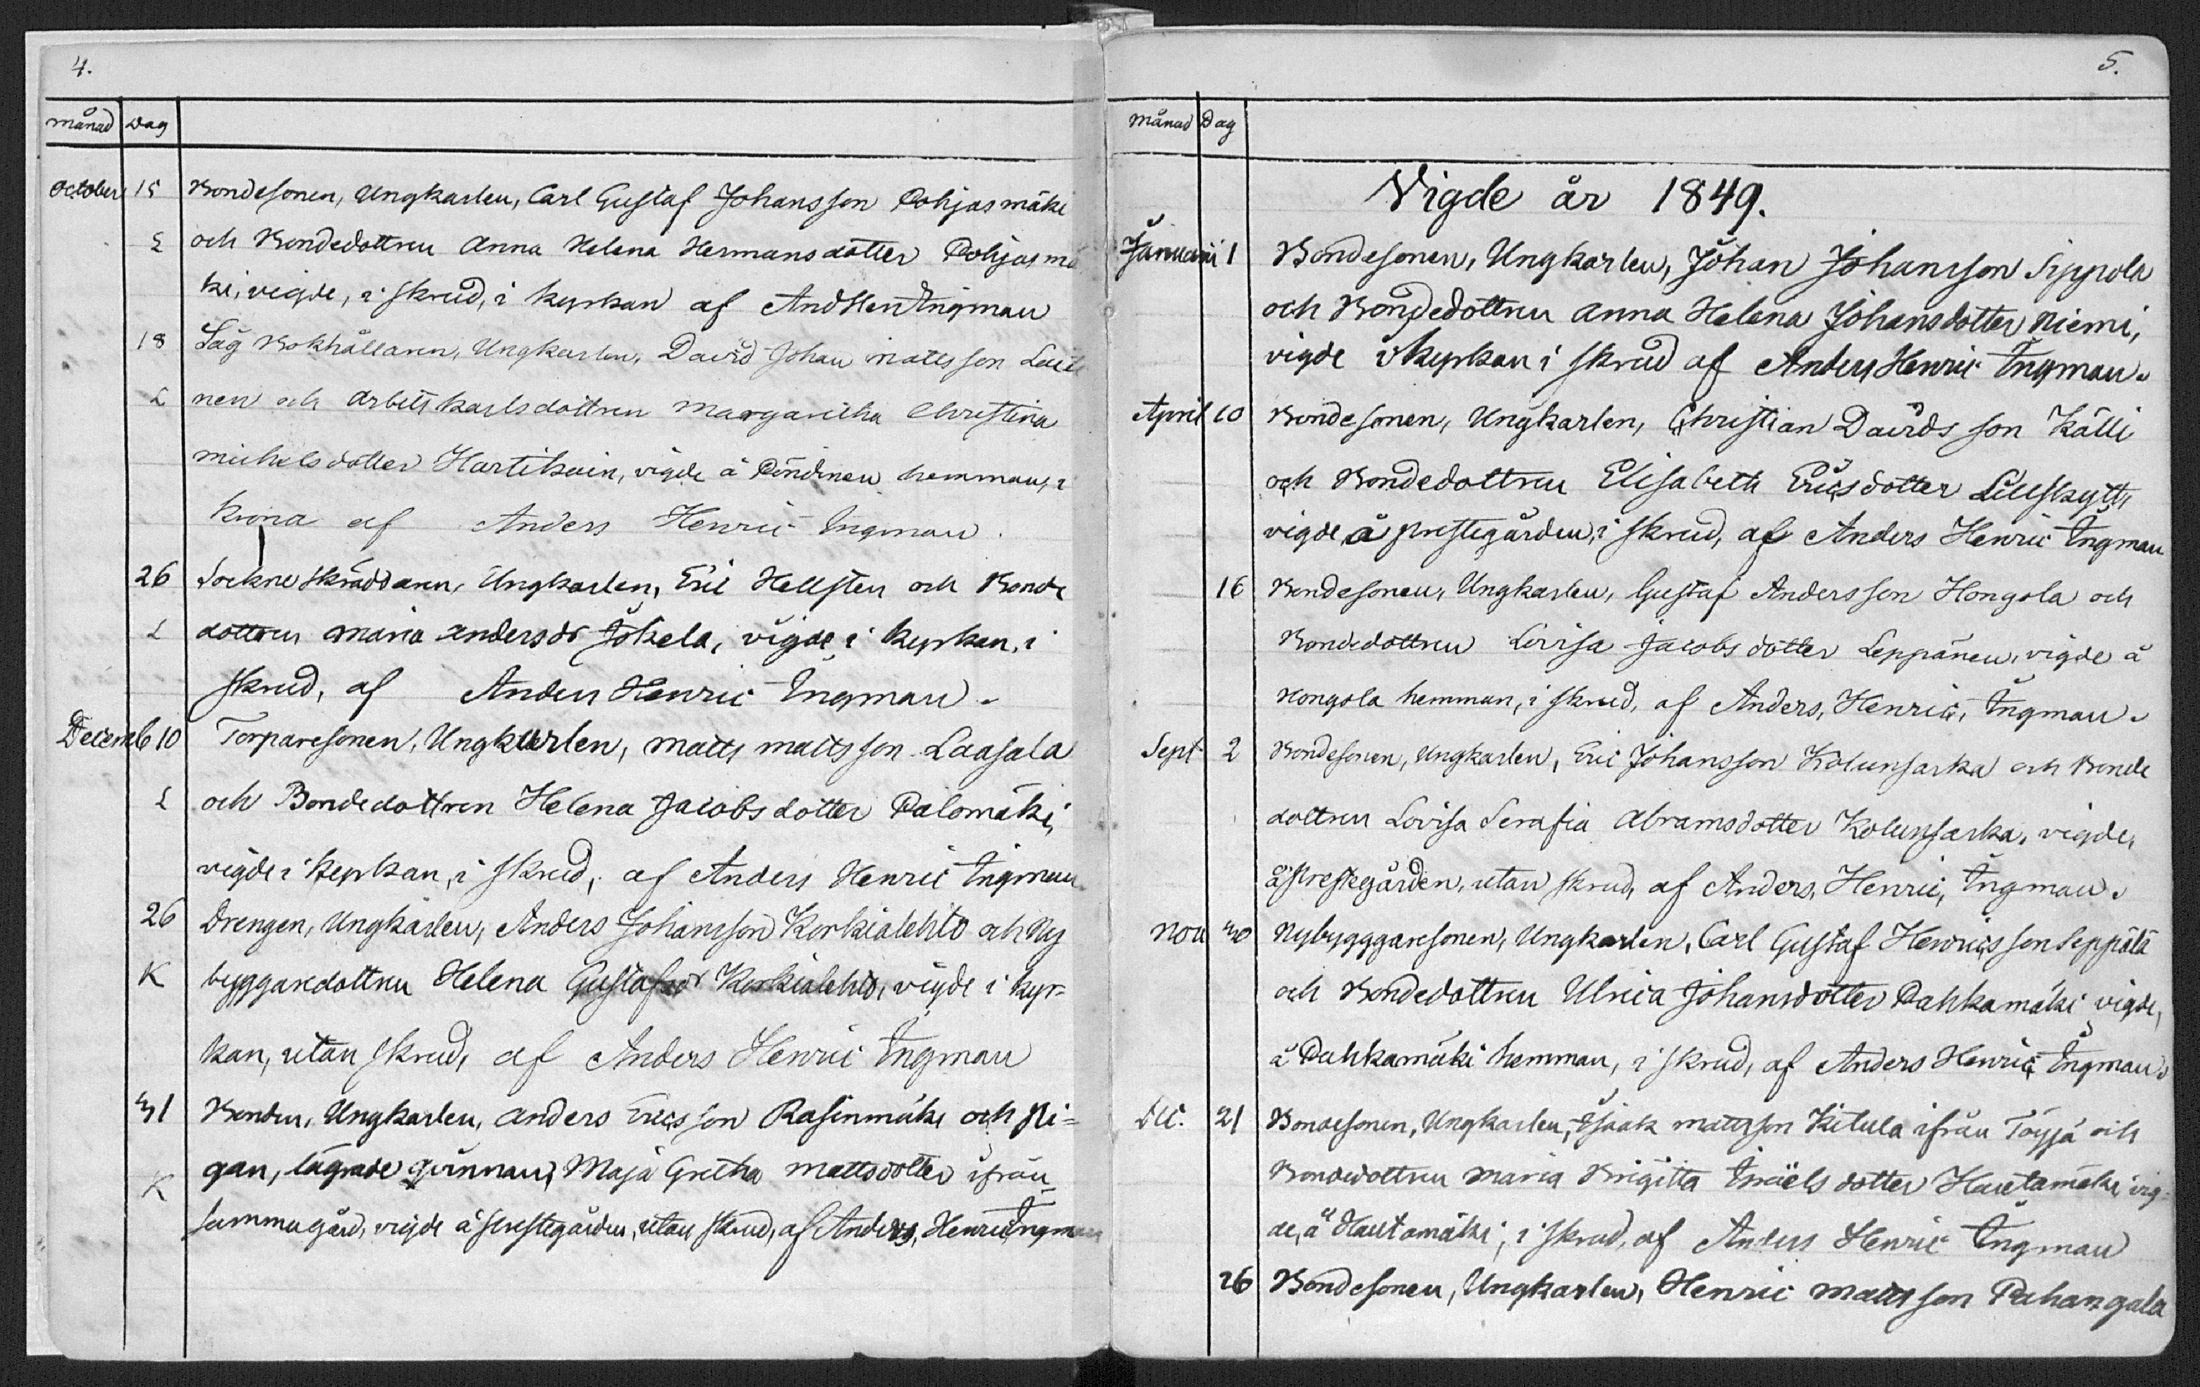 4.
månad Dag
October 15 Bondesonen, Ungkarlen, Carl Gustaf Johansson Pohjasmäki
och Bondedottren Anna Helena Hermansdotter Pohjasmä
ki, vigde, i skrud, i kyrkan af And Hen Ingman
18 Såg Bokhållaren, Ungkarlen, David Johan Mattsson Lait
L nen och arbetskarlsdottren Margaretha Christina
Michelsdotter Hartikain, vigde å Pöndinen hemman, i
krona af Anders Henric Ingman.
26 Sockne skräddaren, Ungkarlen, Eric Hellsten och Bonde
L dottren Maria Andersdr Jokela, vigde i kyrkan, i
skrud, af Anders Henric Ingman.
Decemb 10 Torparesonen, Ungkarlen, Matts Mattsson Laasala
L och Bondedottren Helena Jacobsdotter Palomäki,
vigde i kyrkan, i skrud, af Anders Henric Ingman
26 Drengen, Ungkarlen, Anders Johansson Korkialehto och Ny
K byggaredottren Helena Gustafsdr Korkialehto, vigde i kyr=
kan, utan skrud, af Anders Henric Ingman
31 Bonden, Ungkarlen, Anders Ericsson Rasinmäki och Pi=
gan, lägrade qvinnan, Maja Gretha Mattsdotter ifrån
K
samma gård, vigde å Prestegården, utan skrud, af Anders, Henric Ingman
5.
Månad Dag
Vigde år 1849.
Januari 1 Bondesonen, Ungkarlen, Johan Johansson Sippola
och Bondedottren Anna Helena Johansdotter Niemi,
vigde i kyrkan i skrud af Anders Henric Ingman.
April 10 Bondesonen, Ungkarlen, Christian Davidsson Källi
och Bondedottren Elisabeth Ericsdotter Lillskytts
vigde, å Prestegården, i skrud, af Anders Henric Ingman
16 Bondesonen, Ungkarlen, Gustaf Andersson Hongola och
Bondedottren Lovisa Jacobsdotter Leppänen, vigde å
Hongola hemman, i skrud, af Anders, Henric, Ingman.
Sept 2 Bondesonen, Ungkarlen, Eric Johansson Kolunsarka och Bonde
dottren Lovisa Serafia Abramsdotter Kolunsarka, vigde,
å Prestegården, utan skrud, af Anders, Henric, Ingman.
Nov 30 Nybyggaresonen, Ungkarlen, Carl Gustaf Henricsson Seppälä
och Bondedottren Ulrica Johansdotter Pahkamäki vigde,
å Pahkamäki hemman, i skrud, af Anders Henric Ingman.
Dec. 21 Bondesonen, Ungkarlen, Isaak Mattsson Kitula ifrån Töysä och
Bondedottren Maria Brigitta Israëlsdotter Hautamäki vig=
de, å Hautamäki, i skrud, af Anders Henric Ingman
26 Bondesonen, Ungkarlen, Henric Mattsson Pahangala